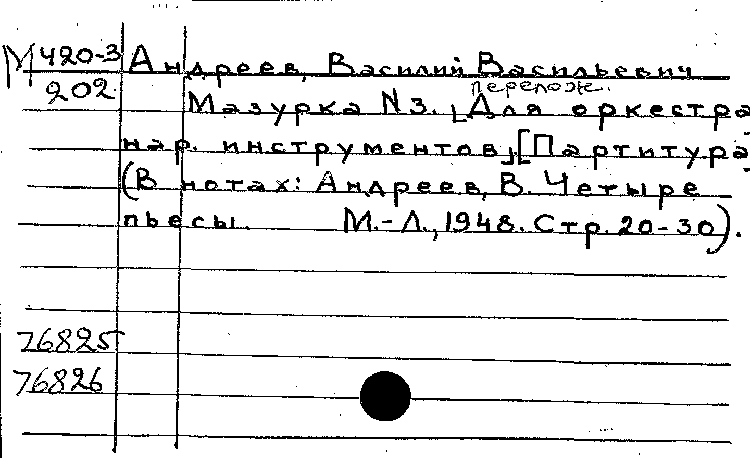 М 420-3 Андреев, Василий Васильевич
202 перелож.
Мазурка N3. [Для оркестра
нар. инструментов] [Партитура
(В нотах: Андреев, В. Четыре
пьесы. М.-Л., 1948. Стр. 20-30).
76825
76826